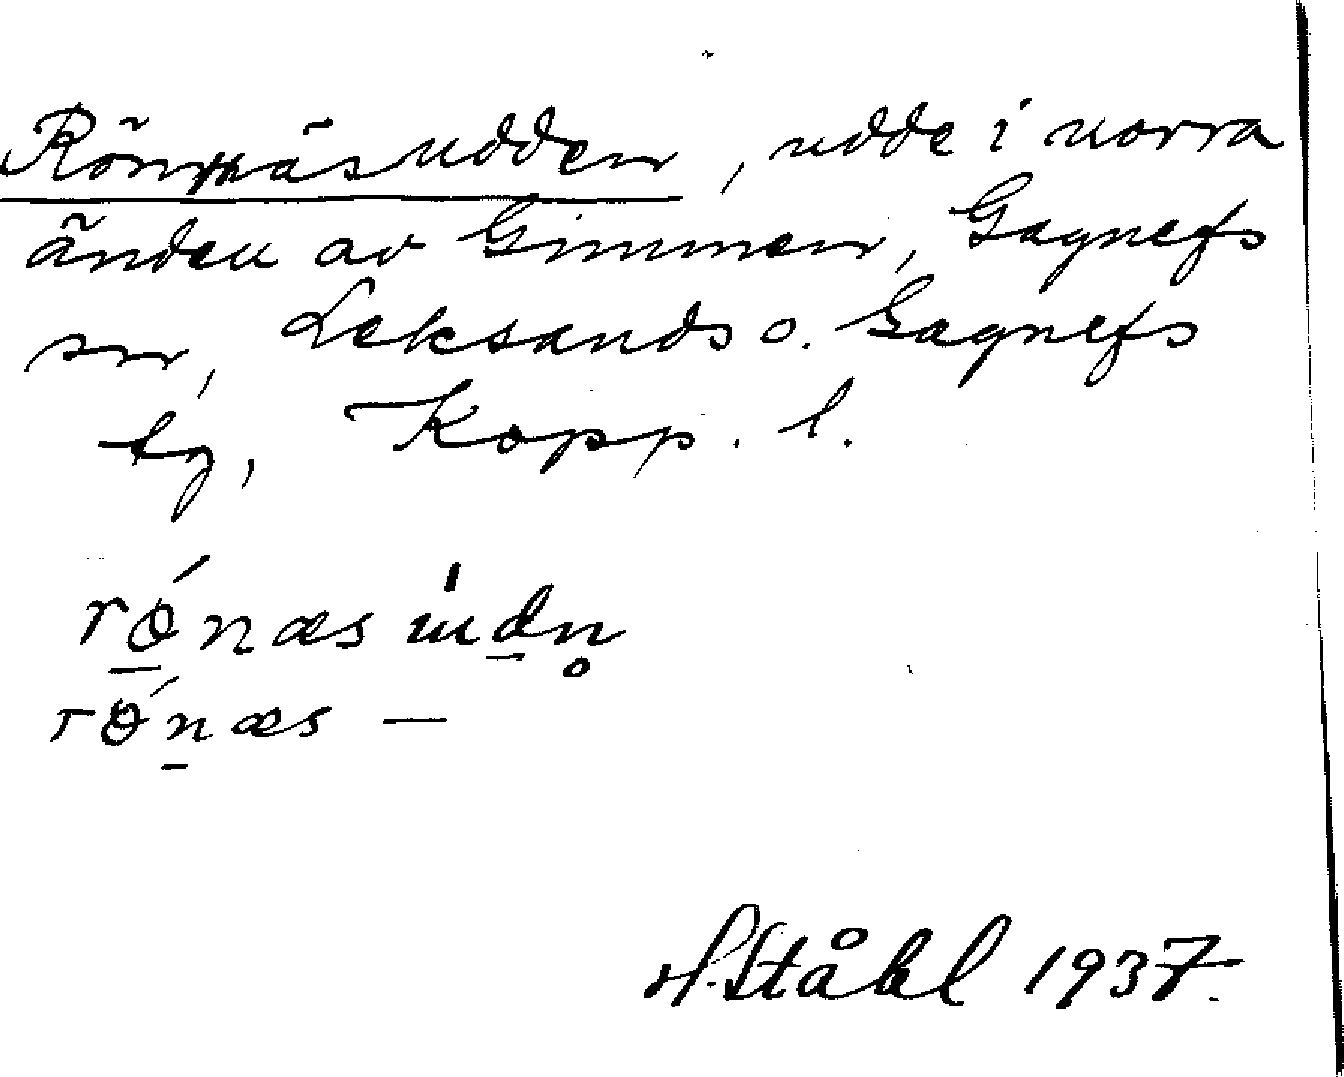 Rönnäsudden, udde i norra
änden av Gimmen, Gagnefs
sn, Leksands o. Gagnefs
tg, Kopp. l.
rǿnæs ùdn̥
rǿnæs —
H. Ståhl 1937.